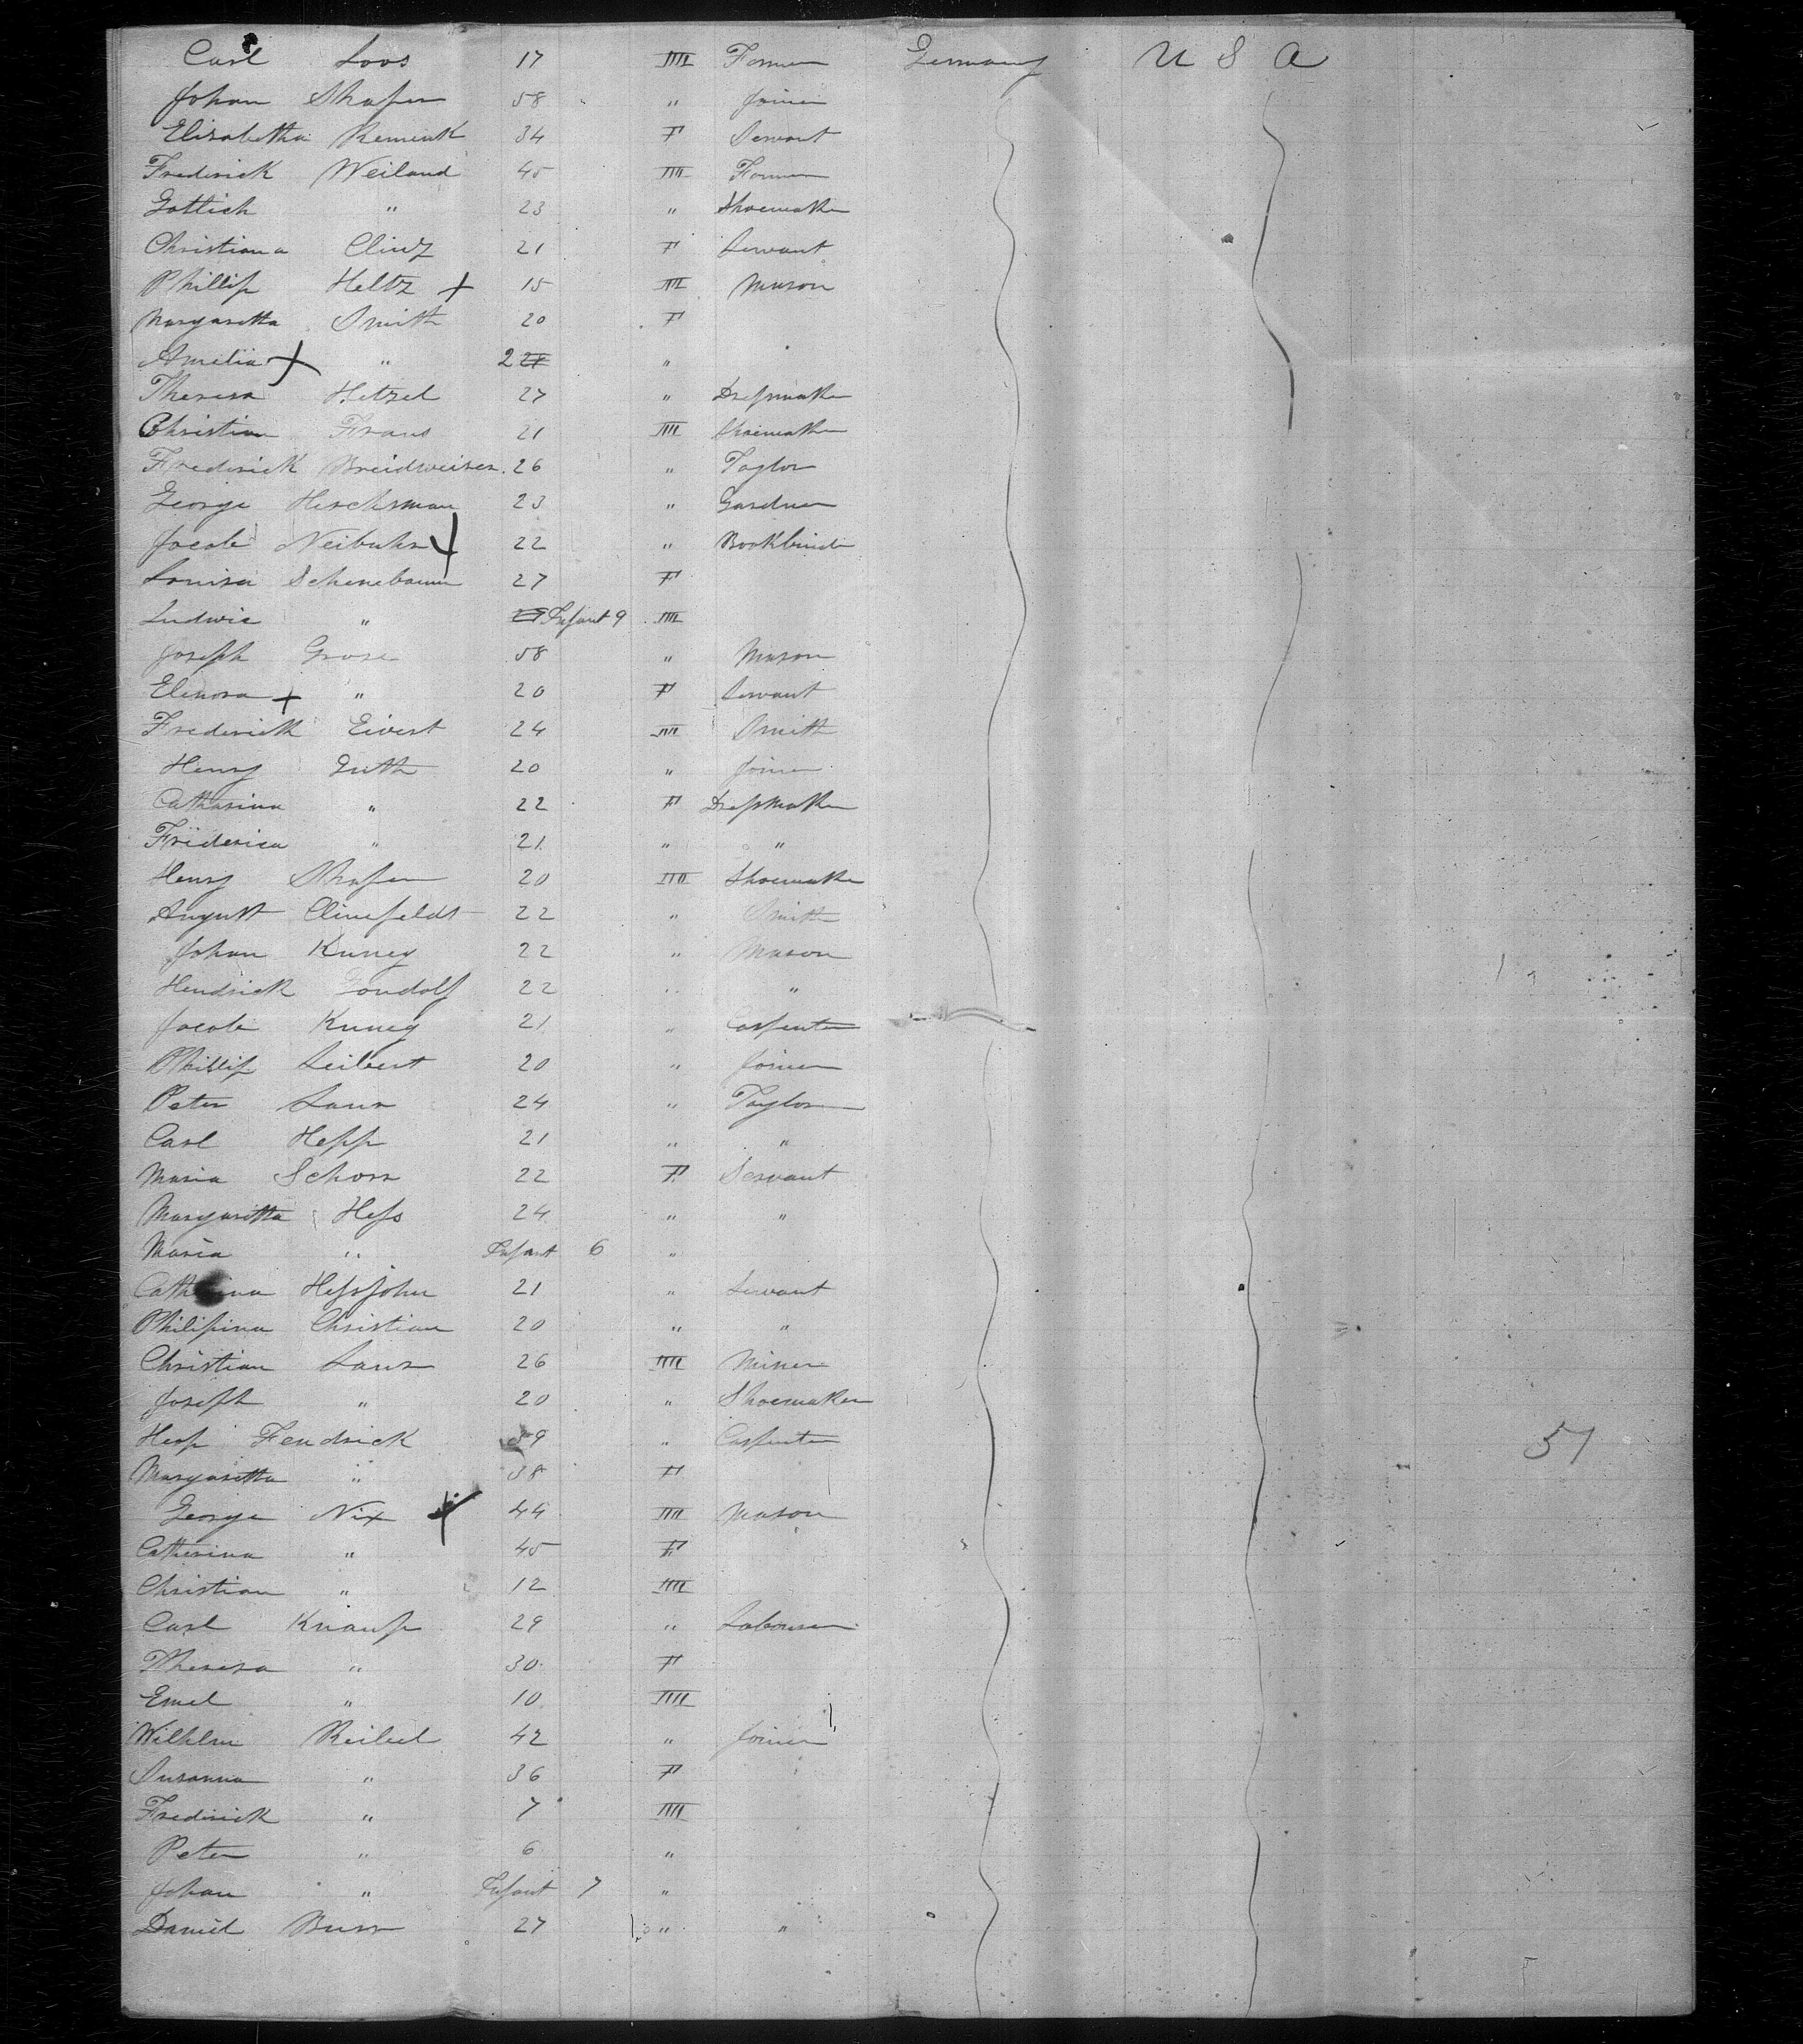 Carl Loos 17 M Farmer Germany U S A
Johan Shafer 58 " Joiner
Elisabetha Rement 34 F Servant
Frederick Weiland 45 M Farmer
Gottlich " 23 " Shoemaker
Christiana Clinz 21 F Servant
Phillip Heltz + 15 M Mason
Margaretta Smith 20 F
Amelia + " 2 "
Theresa Hetzel 27 " Dressmaker
Christian Frans 21 M Shoemaker
Frederick Breidweiser 26 " Taylor
George Herchsman 23 " Gardner
Jacob Neibuhr + 22 " Bookbinder
Louisa Schenebaum 27 F
Ludwic " Infant 9 M
Joseph Grose 58 " Mason
Elenora + " 20 F Servant
Frederick Eivert 24 M Smith
Henry Guth 20 " Joiner
Catharina " 22 F Dressmaker
Friderica " 21 " "
Henry Shafer 20 M Shoemaker
August Clinefeldt 22 " Smith
Johan Kuney 22 " Mason
Hendrick Gondolf 22 " "
Jacob Kuney 21 " Carpenter
Phillip Leibert 20 " Joiner
Peter Laur 24 " Taylor
Carl Hepp 21 " "
Maria Schorr 22 F Servant
Margaritta Hess 24 " "
Maria " Infant 6 "
Catharina Hessjohn 21 " Servant
Philipina Christian 20 " "
Christian Laur 26 M Miner
Joseph " 20 " Shoemaker
Hess Fendrick 39 " Carpenter
Margaretta " 38 F
51
George Nix + 44 M Mason
Catherina " 45 F
Christian " 12 M
Carl Knaup 29 " Labourer
Theresa " 30 F
Emel " 10 M
Wilhlm Reibel 42 " Joiner
Susanna " 36 F
Frederick " 7 M
Peter " 6 "
Johan " Infant 7 "
Daniel Burr 27 " "